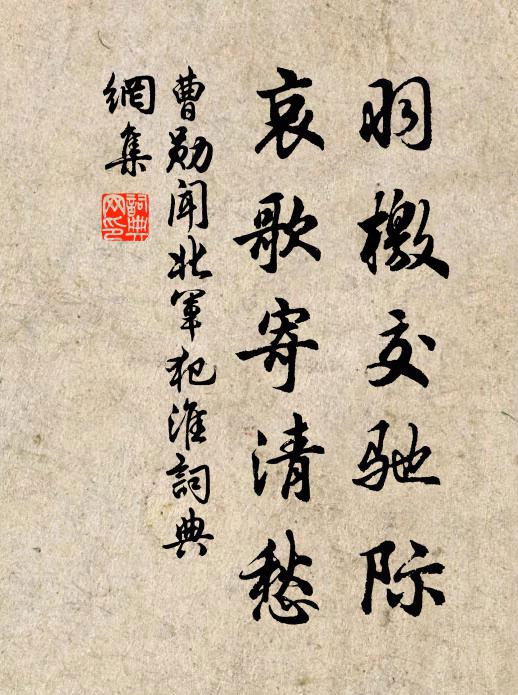 羽檄交驰际
哀歌寄清愁
曹勋闻北军犯淮詞典
網集
詞典網印